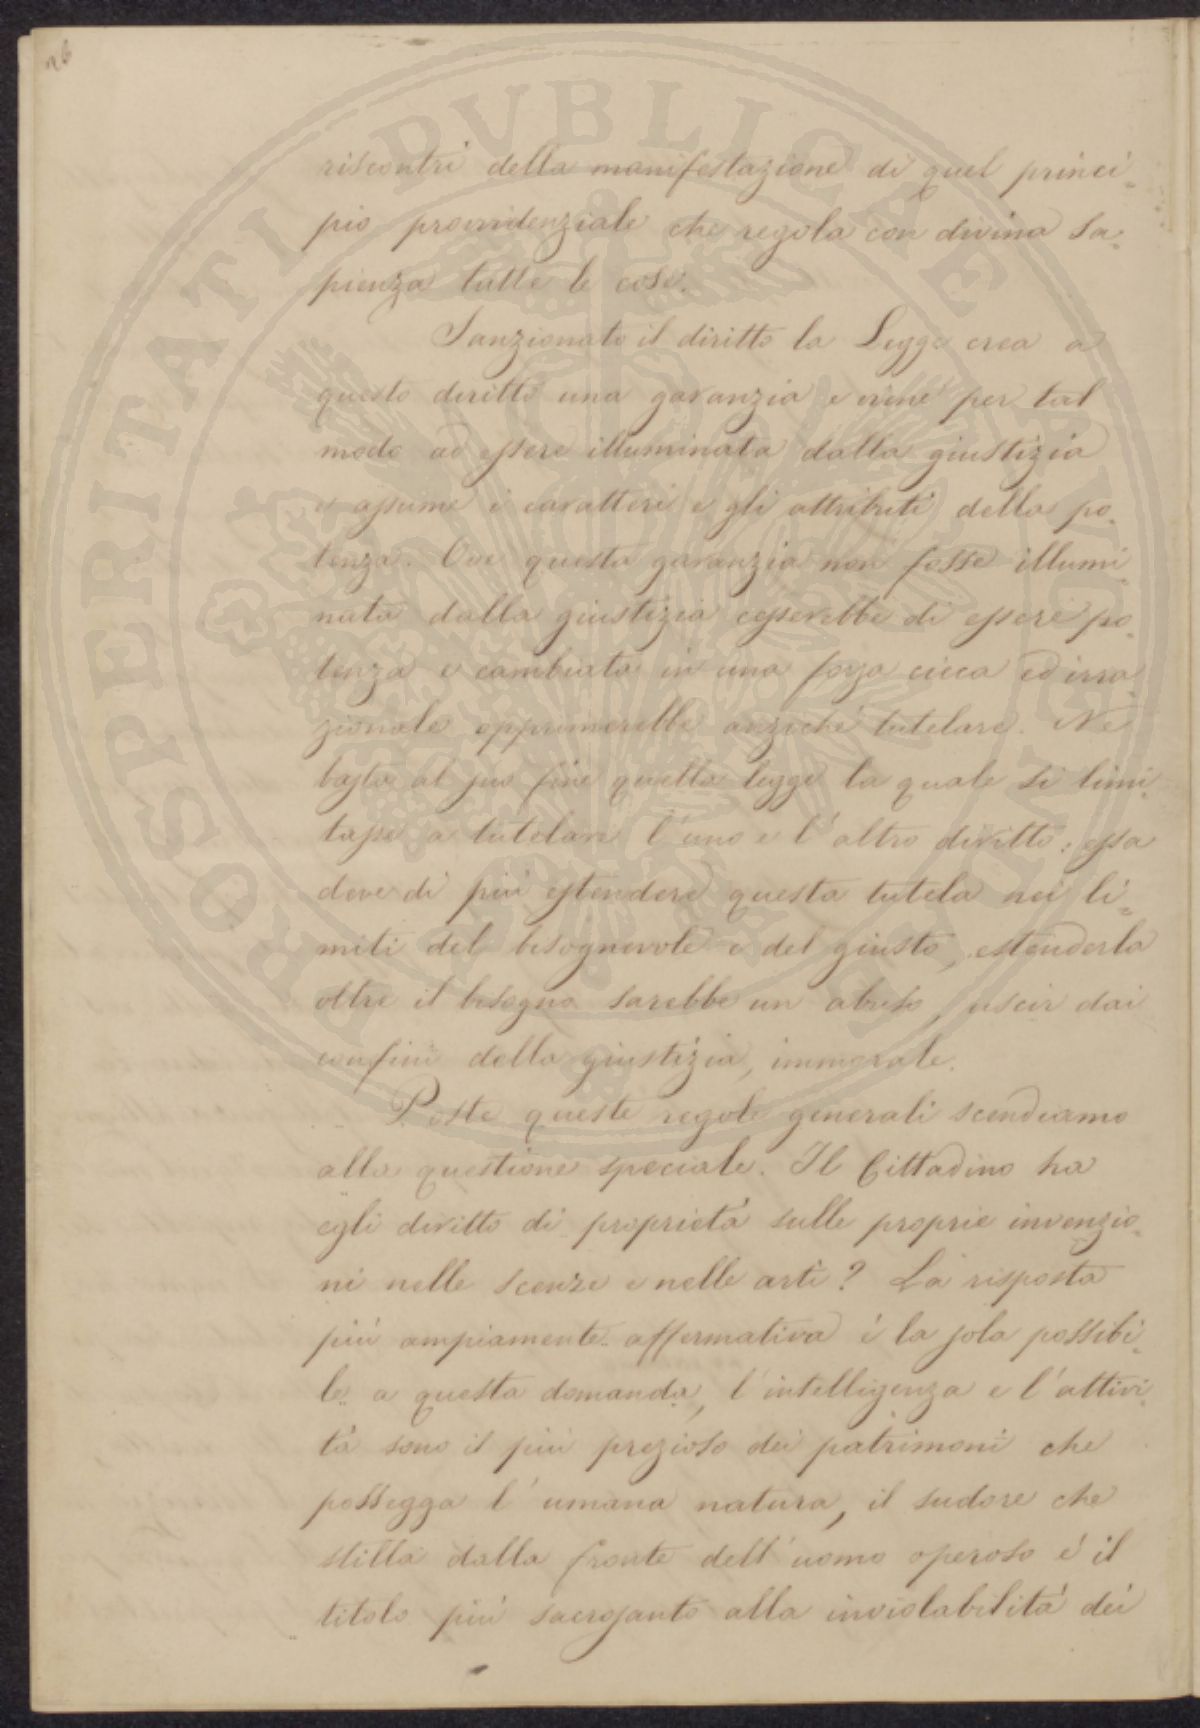 26
PROSPERITATI PVBLICAE
riscontri della manifestazione di quel princi=
pio provvidenziale che regola con divina sa=
pienza tutte le cose.
Sanzionato il diritto la Legge crea a
questo diritto una garanzia e viene per tal
modo ad essere illuminata dalla giustizia
e assume i caratteri e gli attributi della po=
tenza. Ove questa garanzia non fosse illumi=
nata dalla giustizia cesserebbe di essere po=
tenza e cambiata in una forza cieca ed irra=
zionale opprimerebbe anziché tutelare. Ne
basta al suo fine quella legge la quale si limi=
tasse a tutelare l'uno e l'altro diritto; essa
deve di più estendere questa tutela nei li=
miti del bisognevole e del giusto, estenderla
oltre il bisogno sarebbe un abuso, uscir dai
confini della giustizia, immorale.
Poste queste regole generali scendiamo
alla questione speciale. Il Cittadino ha
egli diritto di proprietà sulle proprie invenzio=
ni nelle scenze e nelle arti? La risposta
più ampiamente affermativa è la sola possibi=
le a questa domanda, l'intelligenza e l'attivi=
tà sono il più prezioso dei patrimoni che
possegga l'umana natura, il sudore che
stilla dalla fronte dell'uomo operoso è il
titolo più sacrosanto alla inviolabilità dei